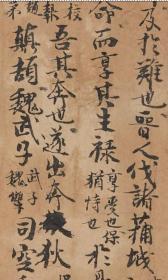 及於難也晉人伐諸蒲城
命而享其生祿
享受也保
猶恃也
於
校
報
吾其奔也遂出奔狄
顛頡魏武子
武子
魏犨
司空